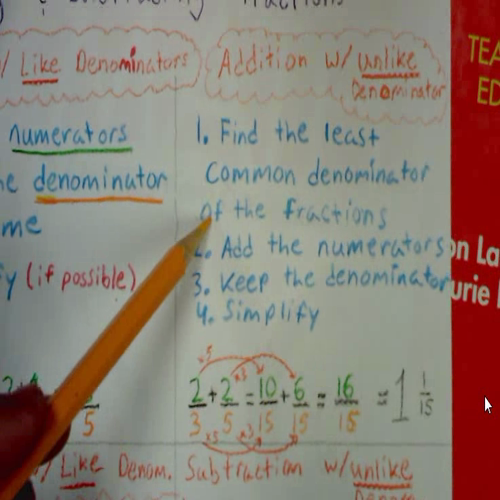 / Like Denominators
numerators
he denominator
me
fy (if possible)
5
Addition w/ unlike
Denominator
1. Find the least
Common denominator
of the fractions
2. Add the numerators
3. Keep the denominator
4. Simplify
x5 x3
2/3 + 2/5 = 10/15 + 6/15 = 16/15 = 1 1/15
x5 x3
/ Like Denom.
Subtraction w/ unlike
TEA
ED
on La
urie